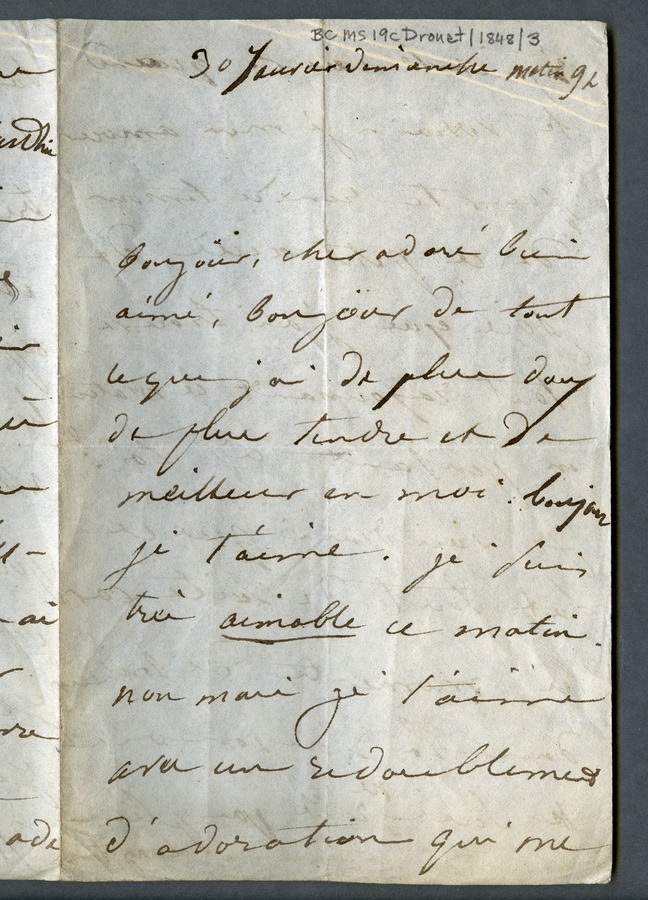 BC MS 19c Drouet/1848/3
30 Janvier Dimanche matin 9h
Bonjour, cher adoré bien
aimé, Bonjour de tout
ce que j'ai de plus doux
de plus tendre et de
meilleur en moi. bonjour
je t'aime. je suis
très aimable ce matin.
non mais je t'aime
avec un redoublement
d'adoration qui me